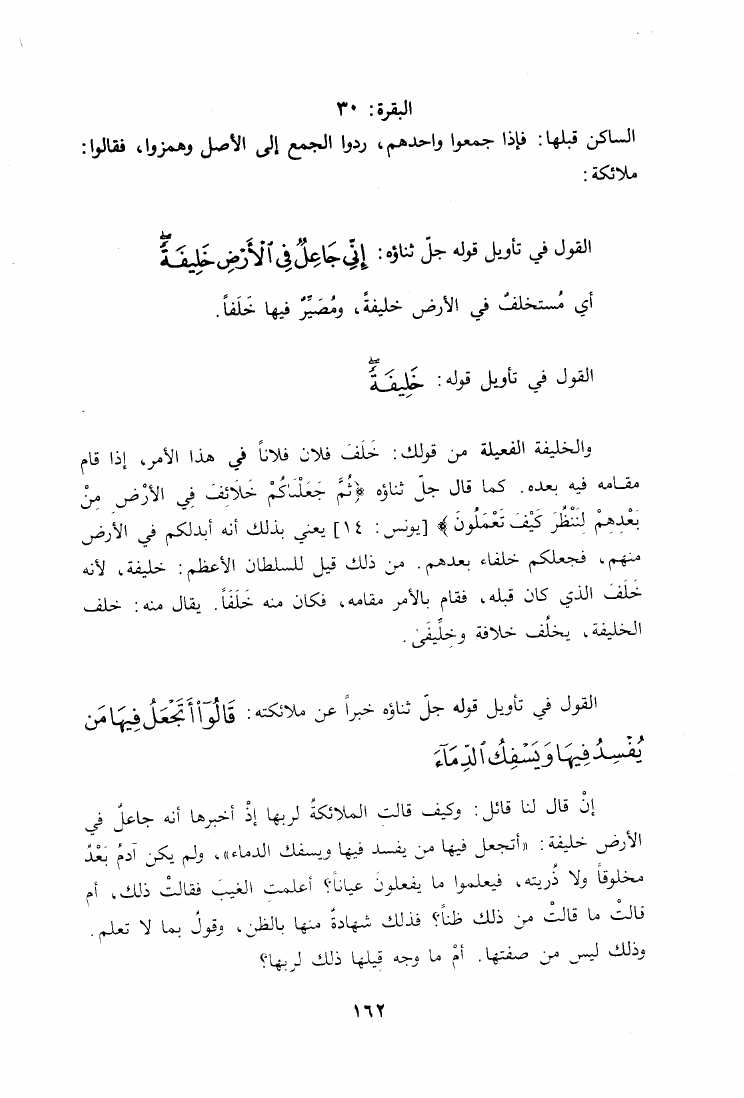 البقرة: ٣٠
الساكن قبلها: فإذا جمعوا واحدهم، ردوا الجمع إلى الأصل وهمزوا، فقالوا:
ملائكة:
القول في تأويل قوله جلّ ثناؤه: إِنِّي جَاعِلٌ فِي ٱلْأَرْضِ خَلِيفَةً ۖ
أي مُستخلفٌ في الأرض خليفةً، ومُصَيِّرٌ فيها خَلَفاً.
القول في تأويل قوله: خَلِيفَةً ۖ
والخليفة الفعيلة من قولك: خَلَفَ فلان فلاناً في هذا الأمر، إذا قام
مقامه فيه بعده. كما قال جلّ ثناؤه ﴿ثُمَّ جَعَلْنَاكُمْ خَلائِفَ فِي الأرْضِ مِنْ
بَعْدِهِمْ لِنَنْظُرَ كَيْفَ تَعْمَلُونَ﴾ [يونس: ١٤] يعني بذلك أنه أبدلكم في الأرض
منهم، فجعلكم خلفاء بعدهم. من ذلك قيل للسلطان الأعظم: خليفة، لأنه
خَلَفَ الذي كان قبله، فقام بالأمر مقامه، فكان منه خَلَفَاً. يقال منه: خلف
الخليفة، يخلُف خلافة وخِلِّيفَىٰ.
القول في تأويل قوله جلّ ثناؤه خبراً عن ملائكته: قَالُوٓا۟ أَتَجْعَلُ فِيهَا مَن
يُفْسِدُ فِيهَا وَيَسْفِكُ ٱلدِّمَآءَ
إنْ قال لنا قائل: وكيف قالت الملائكةُ لربها إذْ أخبرها أنه جاعلٌ في
الأرض خليفة: «أتجعل فيها من يفسد فيها ويسفك الدماء»، ولم يكن آدمُ بَعْدُ
مخلوقاً ولا ذُريته، فيعلموا ما يفعلونَ عياناً؟ أعلمت الغيبَ فقالتْ ذلك، أم
قالتْ ما قالتْ من ذلك ظناً؟ فذلك شهادةٌ منها بالظن، وقولٌ بما لا تعلم.
وذلك ليس من صفتها. أمْ ما وجه قيلها ذلك لربها؟
١٦٢